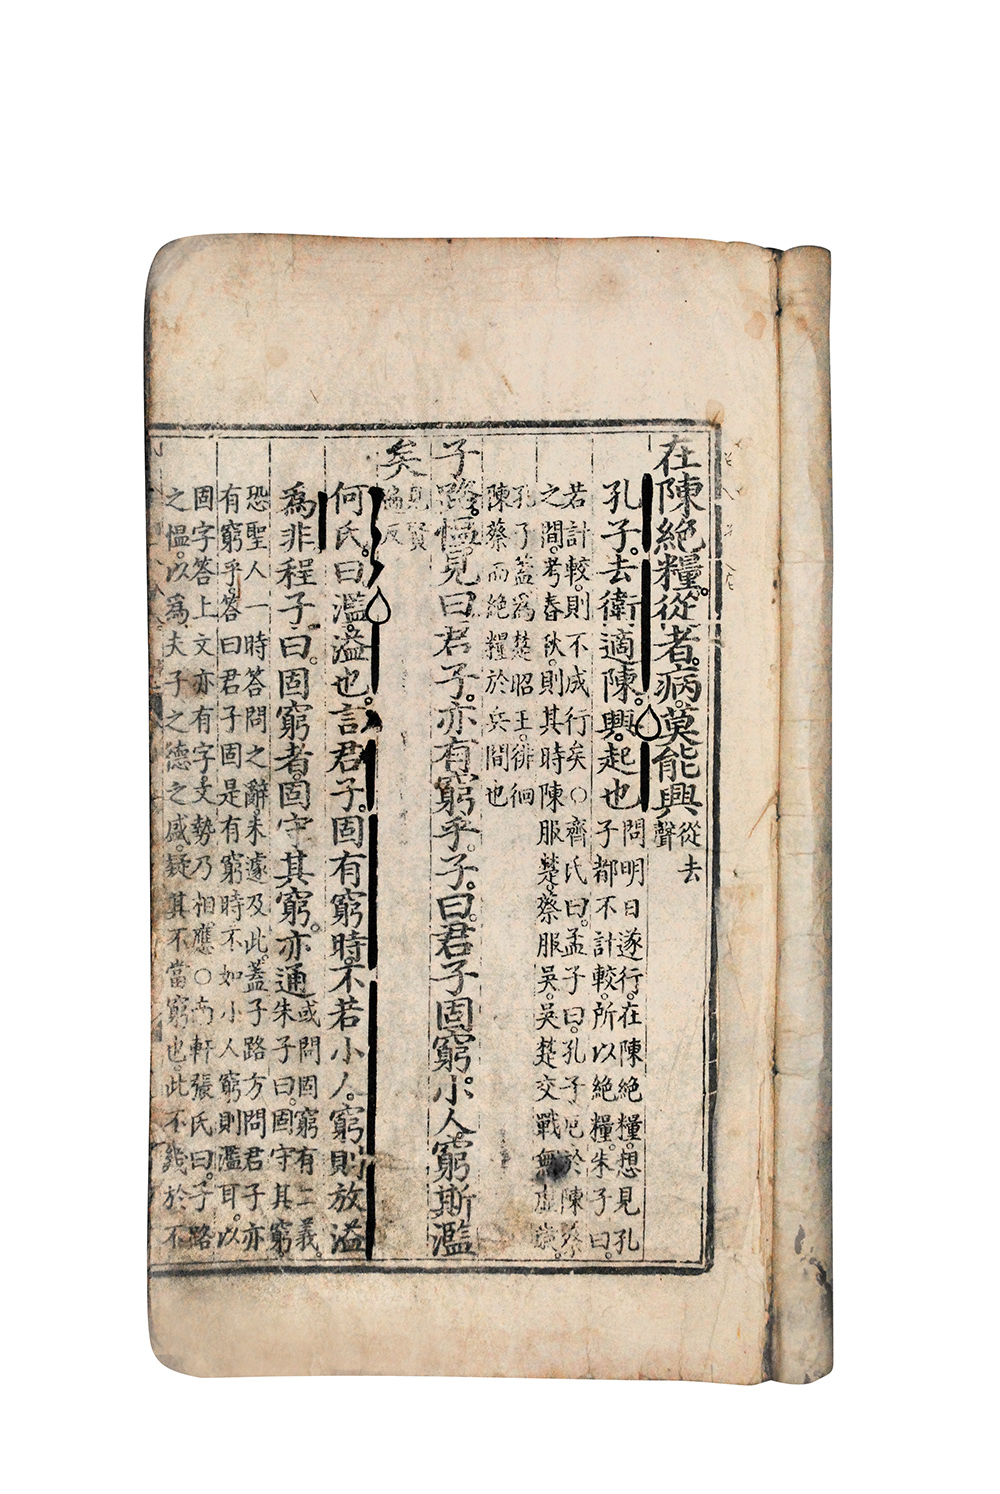 在陳絕糧。從者病。莫能興從去
聲
孔子。去衛適陳。興。起也問明日遂行。在陳絕糧。想見孔
子都不計較。所以絕糧。朱子曰。
若計較。則不成行矣○齊氏曰。孟子曰。孔子厄於陳蔡
之間。考春秋。則其時陳服楚。蔡服吳。吳楚交戰無虛歲。
孔子蓋爲楚昭王。徘徊
陳蔡而絕糧於兵間也
子路慍。見曰君子。亦有窮乎。子。曰。君子固窮。小人窮斯濫
矣見賢
遍反
何氏。曰濫。溢也。言君子。固有窮時。不若小人。窮則放溢
爲非程子。曰。固窮者。固守其窮。亦通或問固窮有二義。
朱子曰。固守其窮。
恐聖人一時答問之辭。未遽及此。蓋子路方問君子亦
有窮乎。答曰君子固是有窮時不如小人窮則濫耳。以
固字答上文亦有字。文勢乃相應○南軒張氏曰。子路
之慍。以爲夫子之德之盛。疑其不當窮也。此不幾於不